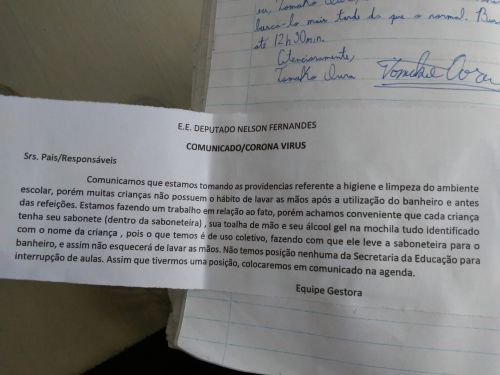 buscá-lo mais tarde do que o normal.
até 12h30min.
Atenciosamente,
E.E. DEPUTADO NELSON FERNANDES
COMUNICADO/CORONA VIRUS
Srs. Pais/Responsáveis
Comunicamos que estamos tomando as providencias referente a higiene e limpeza do ambiente
escolar, porém muitas crianças não possuem o hábito de lavar as mãos após a utilização do banheiro e antes
das refeições. Estamos fazendo um trabalho em relação ao fato, porém achamos conveniente que cada criança
tenha seu sabonete (dentro da saboneteira) , sua toalha de mão e seu álcool gel na mochila tudo identificado
com o nome da criança , pois o que temos é de uso coletivo, fazendo com que ele leve a saboneteira para o
banheiro, e assim não esquecerá de lavar as mãos. Não temos posição nenhuma da Secretaria da Educação para
interrupção de aulas. Assim que tivermos uma posição, colocaremos em comunicado na agenda.
Equipe Gestora